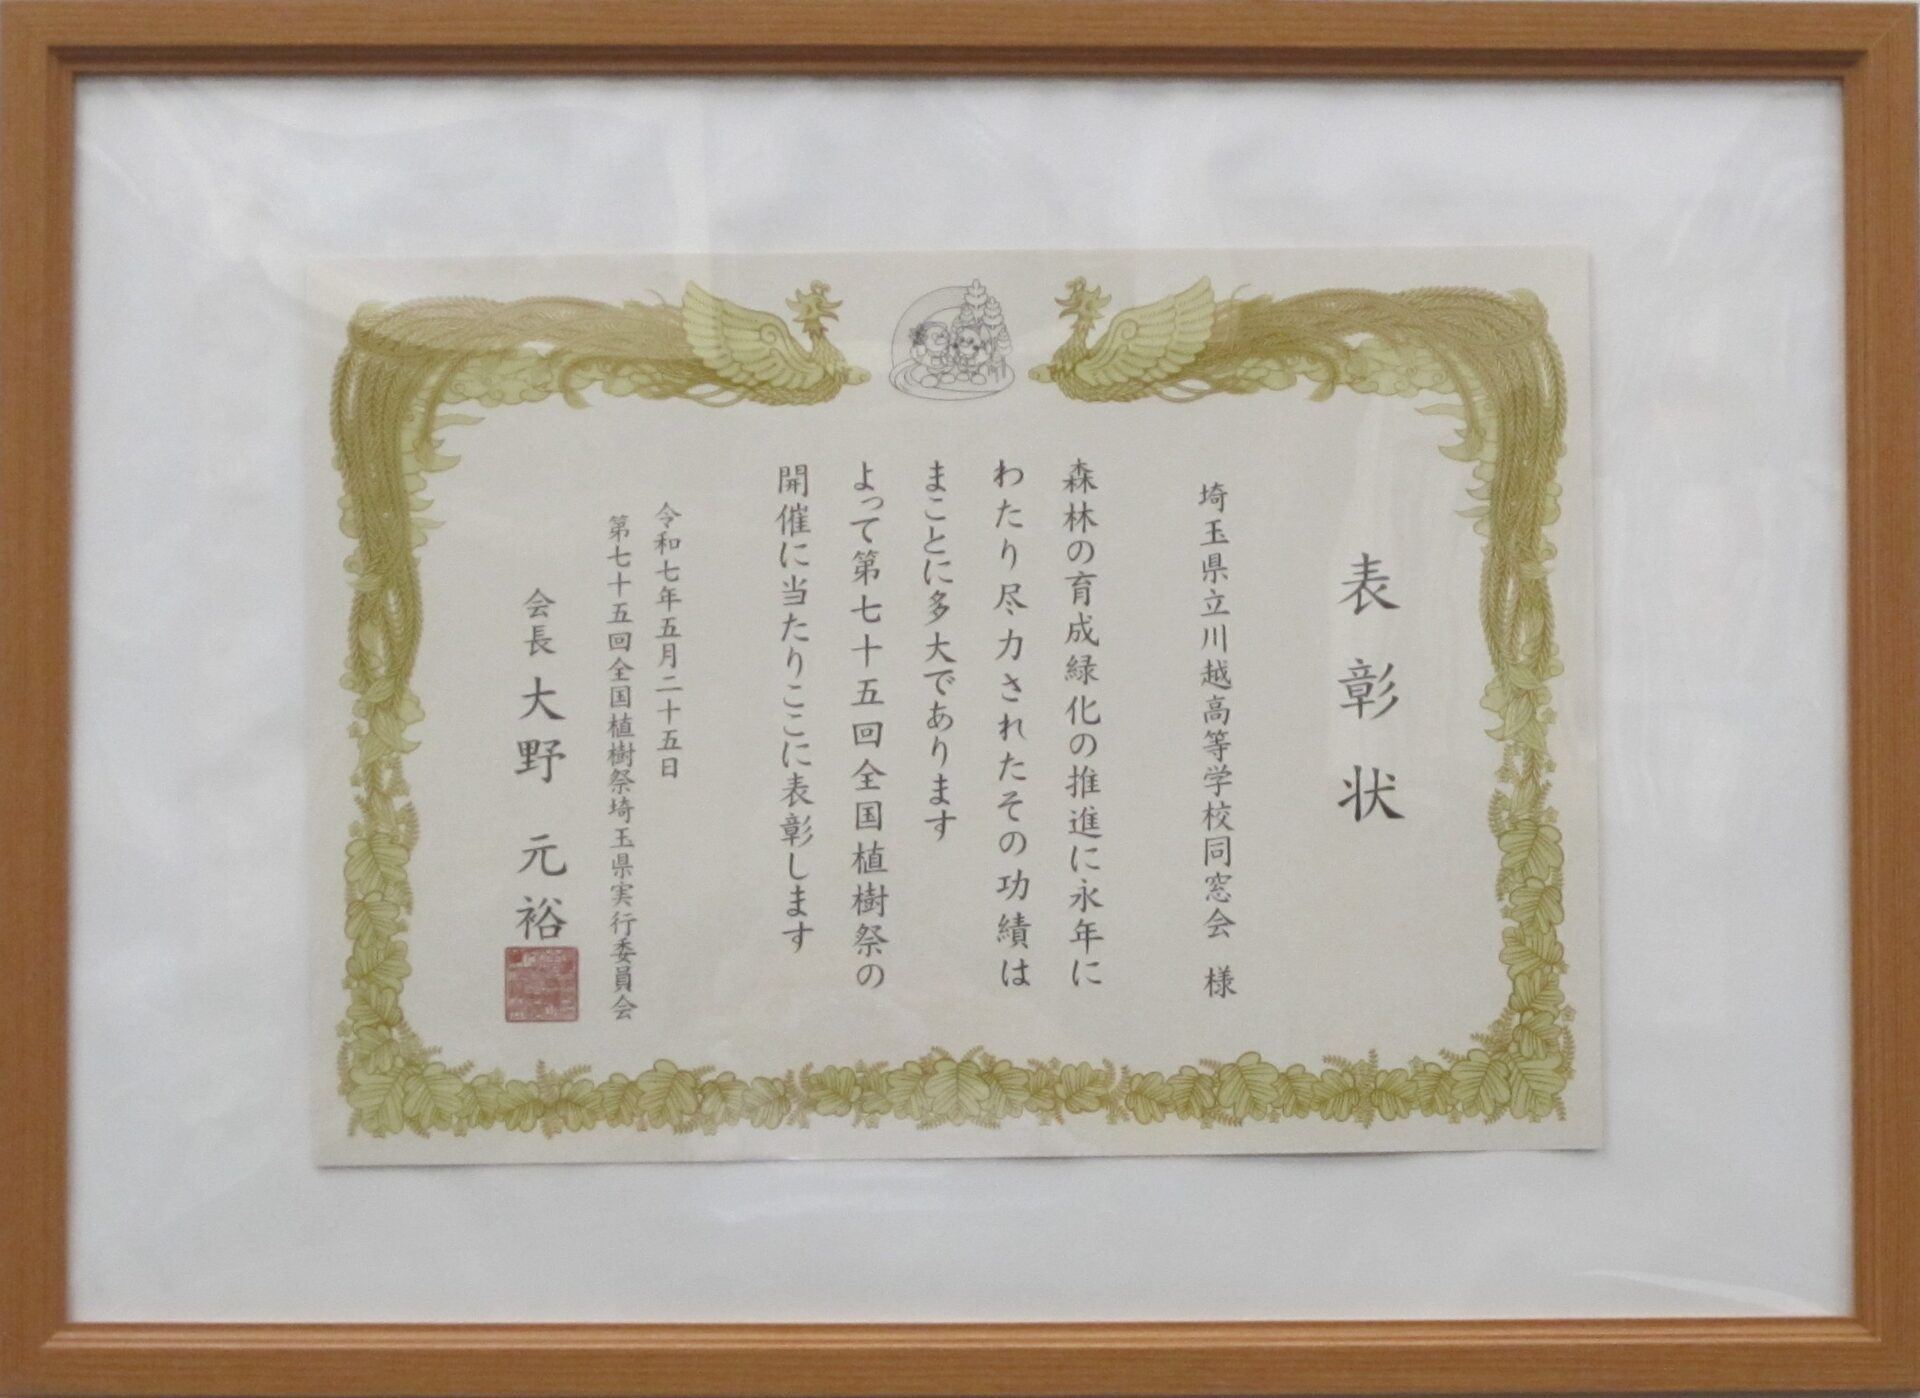 表彰状
埼玉県立川越高等学校同窓会 様
森林の育成緑化の推進に永年に
わたり尽力されたその功績は
まことに多大であります
よって第七十五回全国植樹祭の
開催に当たりここに表彰します
令和七年五月二十五日
第七十五回全国植樹祭埼玉県実行委員会
会長 大野 元裕